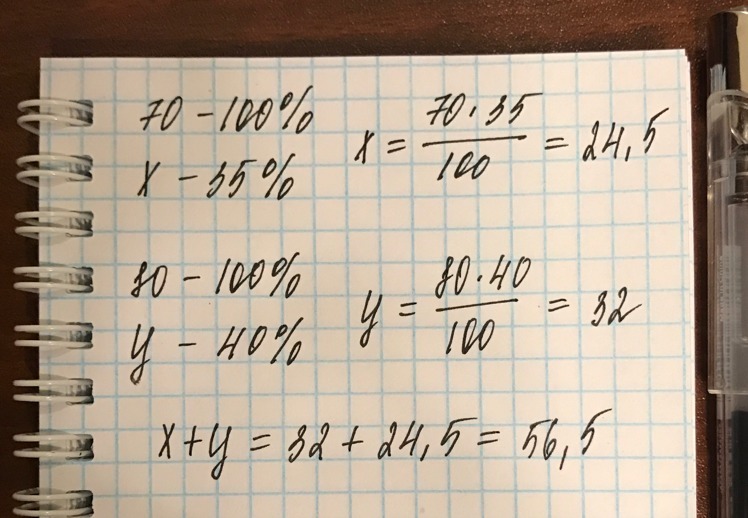 70 - 100%
x - 35%
x = 70·35/100 = 24,5
80 - 100%
y - 40%
y = 80·40/100 = 32
x+y = 32 + 24,5 = 56,5